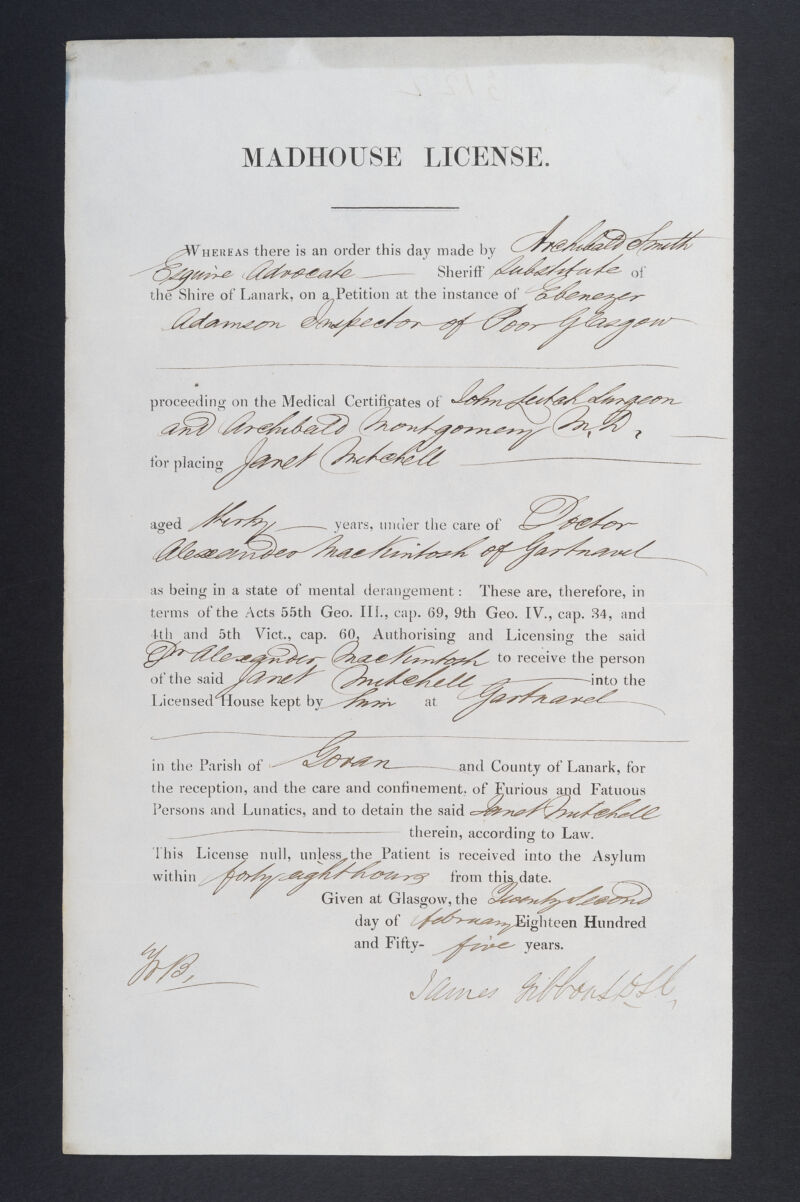 MADHOUSE LICENSE.
WHEREAS there is an order this day made by Archibald Smith
Esquire Advocate Sheriff Substitute of
the Shire of Lanark, on a Petition at the instance of Ebenezer
Adamson Inspector of Poor Glasgow
proceeding on the Medical Certificates of John Surgeon
and Archibald Montgomery M.D,
for placing Janet Mitchell
aged thirty years, under the care of Doctor
Alexander MacKintosh of Gartnavel
as being in a state of mental derangement: These are, therefore, in
terms of the Acts 55th Geo. III., cap. 69, 9th Geo. IV., cap. 34, and
4th and 5th Vict., cap. 60, Authorising and Licensing the said
Dr Alexander MacKintosh to receive the person
of the said Janet Mitchell into the
Licensed House kept by him at Gartnavel
in the Parish of Govan and County of Lanark, for
the reception, and the care and confinement, of Furious and Fatuous
Persons and Lunatics, and to detain the said Janet Mitchell
therein, according to Law.
This License null, unless the Patient is received into the Asylum
within forty eight hours from this date.
Given at Glasgow, the Twenty Second
day of february Eighteen Hundred
and Fifty- five years.
James Gibbons